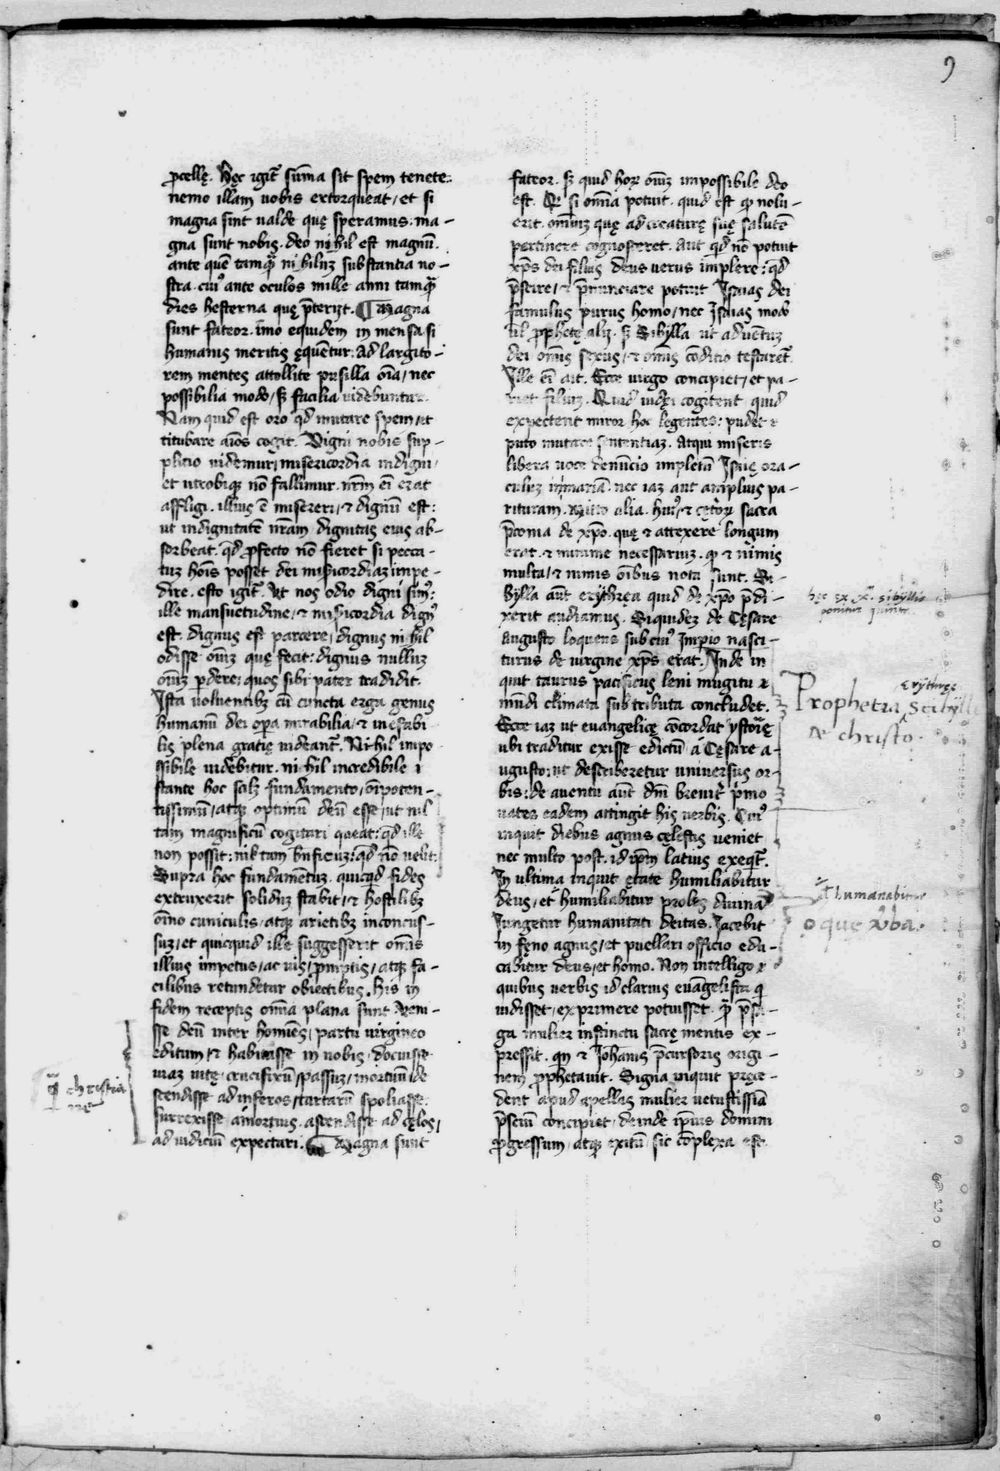 9
ꝓcellę. Hęc igit̃ sũma sit spem tenete:
nemo illam uobis extorqueat, et si
magna sint ualde quę speramus: ma-
gna sunt nobis. deo nihil est magnũ.
ante quẽ tamꝗ̃ nihiluz substantia no-
stra. cuiꝰ ante oculos mille anni tamꝗ̃
dies hesterna quę p̃terijt. ¶ Magna
sunt fateor. imo equidem inmensa si
humanis meritis ęquẽtur. Ad largito-
rem mentes attollite pusilla oĩa, nec
possibilia modo, sꝫ facilia uidebuntur.
Nam quid est oro qd̃ mutare spem, et
titubare aĩos cogit. Digni nobis sup-
plicio uidemur, misericordia indigni,
et utrobiqꝫ nõ fallimur. nr̃m ẽi erat
affligi. illius ẽ misereri, ⁊ dignũ est:
ut indignitatẽ nr̃am dignitas eius ab-
sorbeat. qd̃ ꝓfecto nõ fieret si pecca-
tuz hoĩs posset dei mĩscordiaz impe-
dire. esto igit̃. Vt nos odio digni simꝰ:
ille mansuetudine, ⁊ mĩscordia dignꝰ
est. dignus est parcere, dignus nihil
odisse oĩuz quę fecit: dignus nulluz
oĩuz ꝑdere, quos sibi pater tradidit.
Ista uoluentibꝫ cũ cuncta erga genus
humanũ dei oꝑa mirabilia, ⁊ inefabi-
lis plena gratię uideant̃. Nihil impo
ssibile uidebitur. nihil incredibile ⁊
stante hoc scilꝫ fundamento, oĩpoten-
tissimũ, atqꝫ optimũ deũ esse, ut nil
tam magnificũ cogitari queat: qd̃ ille
non possit: nil tam bñficuz: qd̃ nõ uelit:
Supra hoc fundamẽtuz. quicqd̃ fides
extruxerit soliduz stabit, ⁊ hostilibꝫ
oĩno cuniculis, atqꝫ arietibꝫ inconcus-
suz, et quicquid ille suggesserit omĩs
illius impetus, ac uis, ꝓmptis, atqꝫ fa-
cilibus retundetur obiectibus. His in
fidem receptis omĩa plana sunt. Veni-
sse deũ inter homines, partu uirgineo
editum, ⁊ habitasse in nobis, docuisse
uiaz uitę, crucifixũ, passuz, mortuũ, de
scendisse ad inferos, tartarũ spoliasse.
surrexisse amortuis. ascendisse ad cęlos,
ad iudiciũ expectari. ¶ Magna sunt
christia
fateor. sꝫ quid hoꝝ oĩuz impossibile deo
est. Qꝫ si omĩa potuit. quid est ꝙ nolu-
erit. omĩuz quę ad creaturę suę salutẽ
pertinere cognosceret. Aut qd̃ nõ potuit
xp̃s dei filius deus uerus implere: qd̃
p̃scire, ⁊ p̃nunciare potuit Isaias dei
famulus purus homo, nec Isaias modo
ꝓphetę alij. sꝫ Sibylla ut aduẽtuz
dei omĩs sexus, ⁊ omĩs cõditio testaret̃.
Ille ẽi ait. Ecce uirgo concipiet, et pa-
riet filiuz. Quid iudęi cogitent quid
expectent miror hoc legentes: pudet ⁊
puto mutare sententiaz. Atqui miseris
libera uoce denũcio impletũ Isaię ora-
culuz in mariã. nec iaz aut ampluis pa-
rituram. Mitto alia. huiꝰ, ⁊ cęteroꝝ sacra
p̃conia de xp̃o. quę ⁊ attexere longum
erat. ⁊ minime necessariuz. ꝙ ⁊ nimis
multa, ⁊ nimis oĩbus nota sunt. Si-
bylla aũt erythręa quid de xp̃o p̃di-
xerit audiamus. Siquidez de Cęsare
augusto loquens sub cuiꝰ Imꝑio nasci-
turus de uirgine xp̃s erat. Inde in
quit taurus pacificus leni mugitu ⁊
mũdi climata sub tributa concludet.
Ecce iaz ut euangelicę cõcordat ystorię
ubi traditur exisse edictũ á Cęsare a-
ugusto: ut describeretur uniuersus or-
bis: de auentu aũt dñi breuit̃ p̃mo
uates eadem attingit his uerbis. Cuiꝰ
inquit diebus agnus cęlestis ueniet
nec multo post. id ip̃m latius exeqt̃.
In ultima inquit etate humiliabitur
deus, et humiliabitur proles diuina
Iungetur humanitati deitas. Iacebit
in fęno agnus, et puellari officio edu-
cabitur deus, et homo. Non intelligo ⁊
quibus uerbis id clarius euãgelista qui
uidisset, exprimere potuisset.
ga mulier instinctu sacrę mentis ex-
pressit. qñ ⁊ Iohanis p̃cursoris origi-
nem ꝓphetauit. Signa inquit pręce-
dent apud apellas mulier uetustissia
p̃sciũ concipiet, deinde ipsius domini
ꝓgressum, atqꝫ exitũ, sic cõplexa est.
Prophetia Erythręę Scibyllę
de christo.
humanabitur